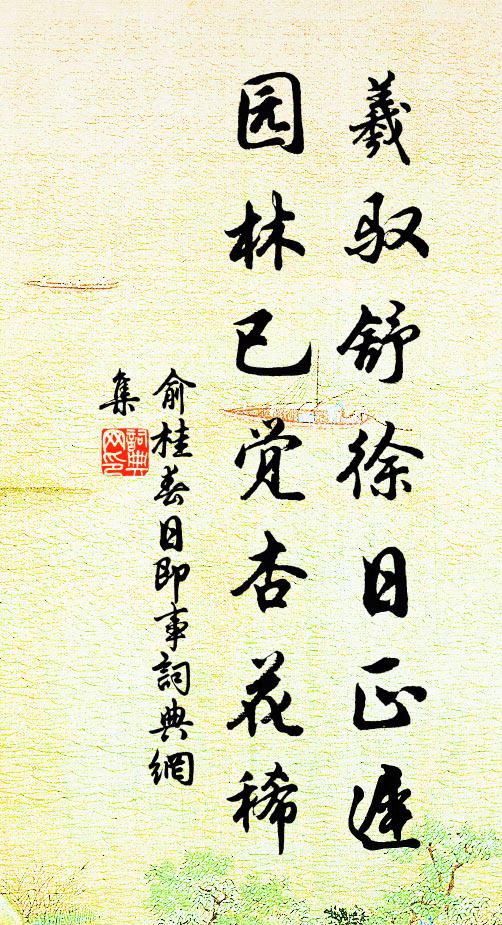 羲驭舒徐日正迟
园林已觉杏花稀
俞桂春日即事詞典網
集
詞典网印